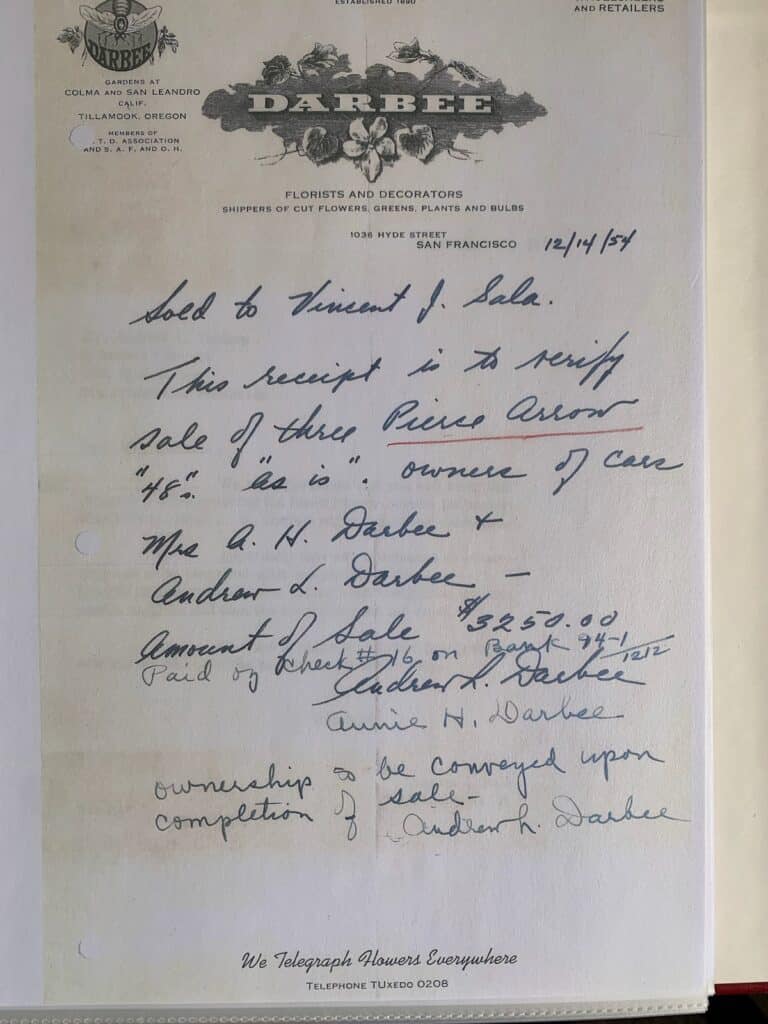 ESTABLISHED 1890
AND RETAILERS
DARBEE
GARDENS AT
COLMA AND SAN LEANDRO
CALIF.
TILLAMOOK, OREGON
MEMBERS OF
T. D. ASSOCIATION
AND S. A. F. AND O. H.
DARBEE
FLORISTS AND DECORATORS
SHIPPERS OF CUT FLOWERS, GREENS, PLANTS AND BULBS
1036 HYDE STREET
SAN FRANCISCO
12/14/54
Sold to Vincent J. Sala.
This receipt is to verify
sale of three Pierce Arrow
"48"s. "as is". owners of cars
Mrs A. H. Darbee +
Andrew L. Darbee —
Amount of Sale $3250.00
Paid by check # 16 on Bank 94-1/1212
Andrew L. Darbee
Annie H. Darbee
ownership to be conveyed upon
completion of sale-
Andrew L. Darbee
We Telegraph Flowers Everywhere
TELEPHONE TUXEDO 0208